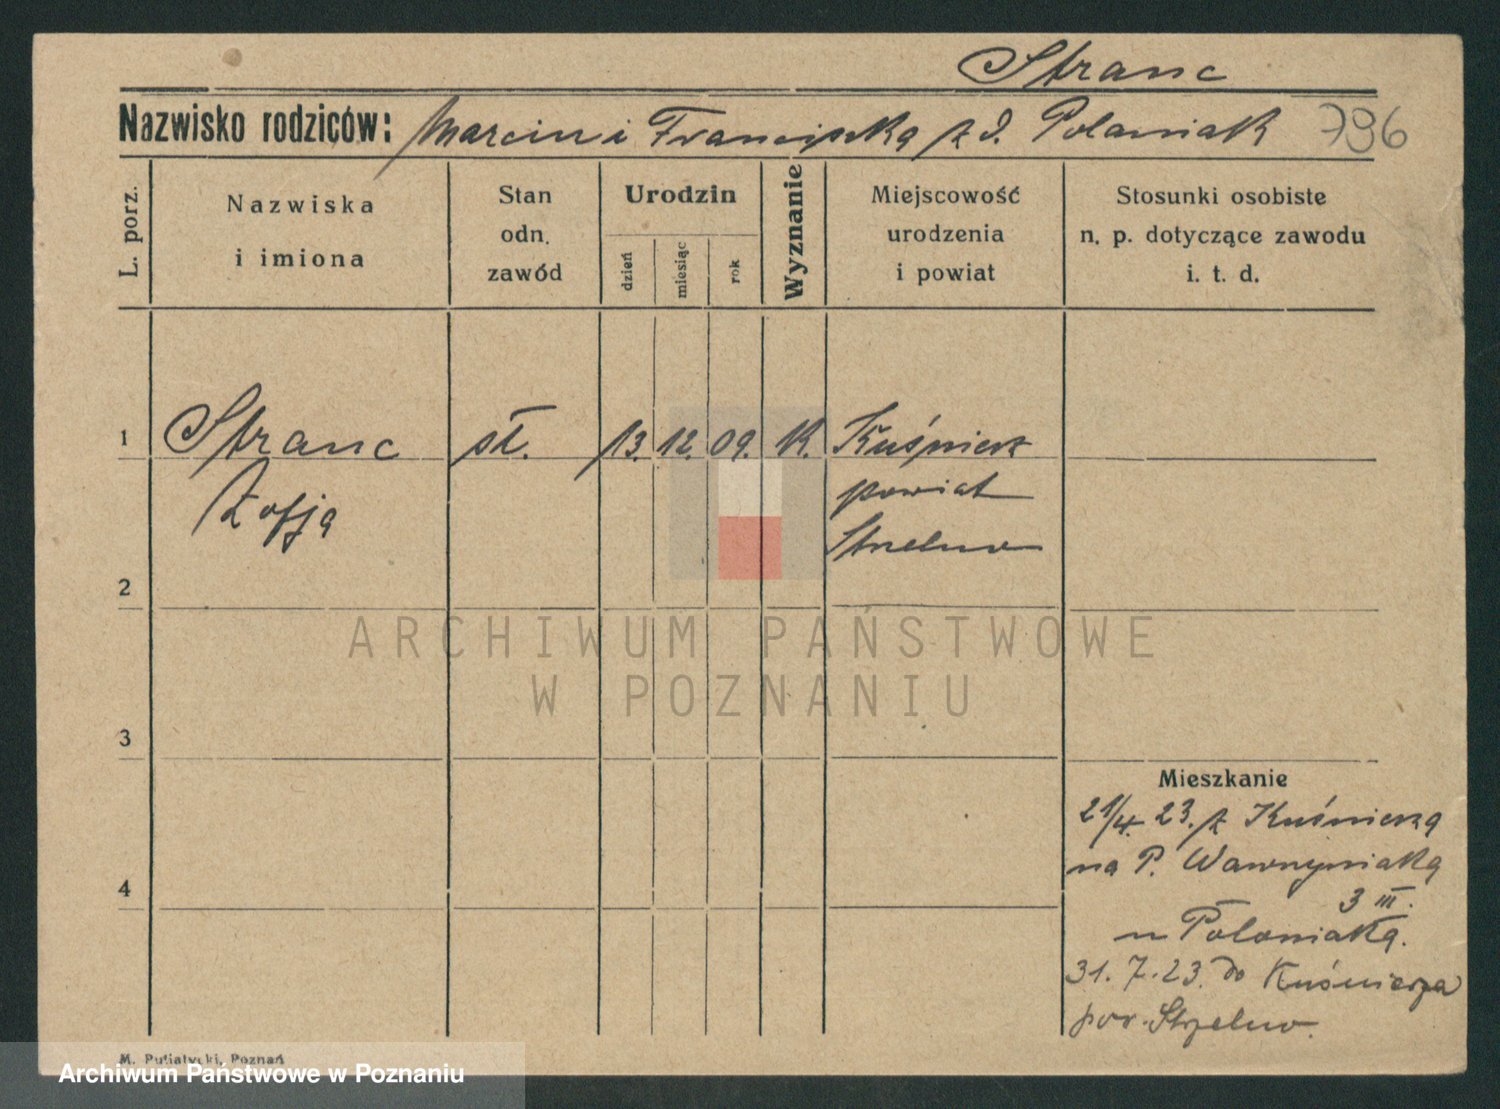 Stranc
Nazwisko rodziców: Marcin i Franciszka z d. Polaniak 796
L. porz.
Nazwiska
i imiona
Stan
odn.
zawód
Urodzin
dzień
miesiąc
rok
Wyznanie
Miejscowość
urodzenia
i powiat
Stosunki osobiste
n. p. dotyczące zawodu
i. t. d.
1 Stranc sł. 13. 12. 09. K. Kuśnierz
Zofja powiat
Strzelno
2
ARCHIWUM PAŃSTWOWE
W POZNANIU
3
Mieszkanie
21/4. 23. z Kuśnierza
na P. Wawrzyniaka
3 III.
u Polaniaka.
31. 7. 23. do Kuśnierza
pow. Strzelno.
4
M. Putiatycki, Poznań
Archiwum Państwowe w Poznaniu